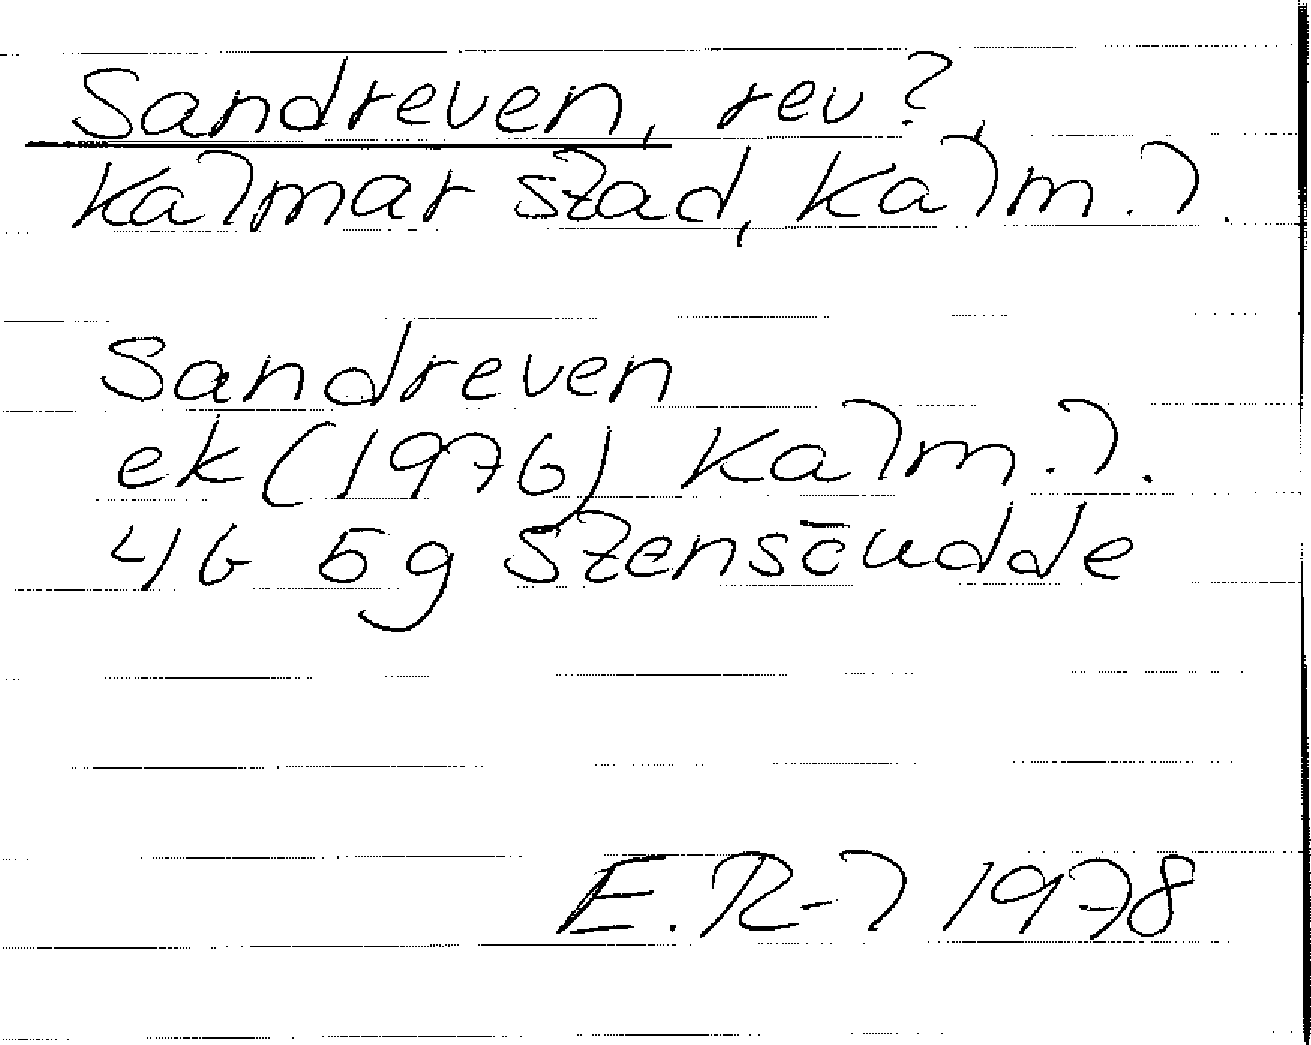 Sandreven, rev?,
Kalmar stad, Kalm. l.
Sandreven
ek (1976) Kalm. l.
4G 5g Stensöudde
E. R-l 1978